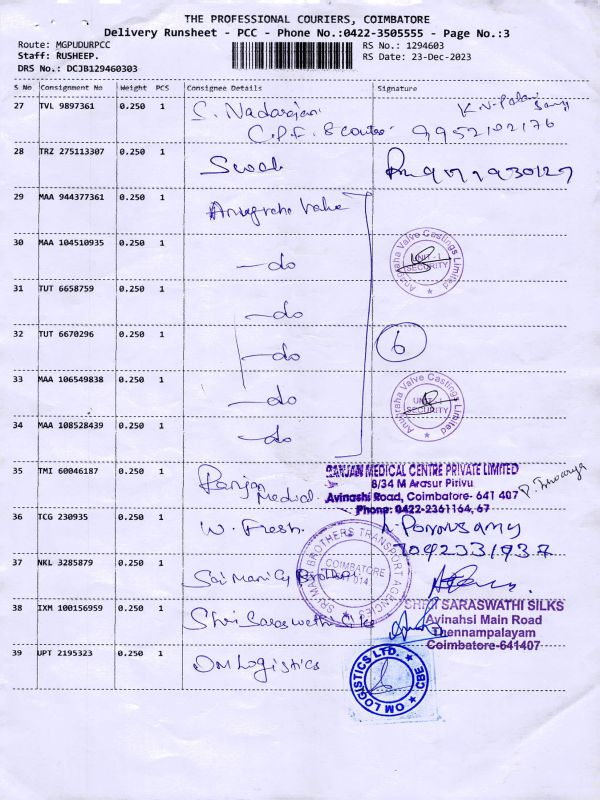 THE PROFESSIONAL COURIERS, COIMBATORE
Delivery Runsheet - PCC - Phone No.:0422-3505555 - Page No.:3
Route: MGPUDURPCC
Staff: RUSHEEP.
DRS No.: DCJB129460303
RS No.: 1294603
RS Date: 23-Dec-2023
S No Consignment No Weight PCS Consignee Details Signature
27 TVL 9897361 0.250 1 C. Nadarajan
C.P.F. 9952102176
28 TRZ 275113307 0.250 1
29 MAA 944377361 0.250 1 Anugraha Valve
30 MAA 104510935 0.250 1 -do
Anugraha Valve Castings Limited
UNIT - I
SECURITY
31 TUT 6658759 0.250 1 -do
32 TUT 6670296 0.250 1 -do 6
33 MAA 106549838 0.250 1 -do
Anugraha Valve Castings Limited
UNIT - I
SECURITY
34 MAA 108528439 0.250 1 -do
35 TMI 60046187 0.250 1 Ranjan
Medical
RANJAN MEDICAL CENTRE PRIVATE LIMITED
8/34 M Arasur Pirivu
Avinashi Road, Coimbatore- 641 407
Phone: 0422-2361164, 67
36 TCG 230935 0.250 1 W. Fresh
37 NKL 3285879 0.250 1 Sri Mani Brothers
SRI MANI BROTHERS TRANSPORT AGENCIES
COIMBATORE
38 IXM 100156959 0.250 1 Shri Saraswathi Silks
SHRI SARASWATHI SILKS
Avinahsi Main Road
Thennampalayam
Coimbatore-641407
39 UPT 2195323 0.250 1 OM Logistics
OM LOGISTICS LTD.
CBE